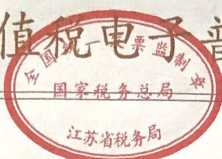 值税电子普
全国统一发票监制章
国家税务总局
江苏省税务局